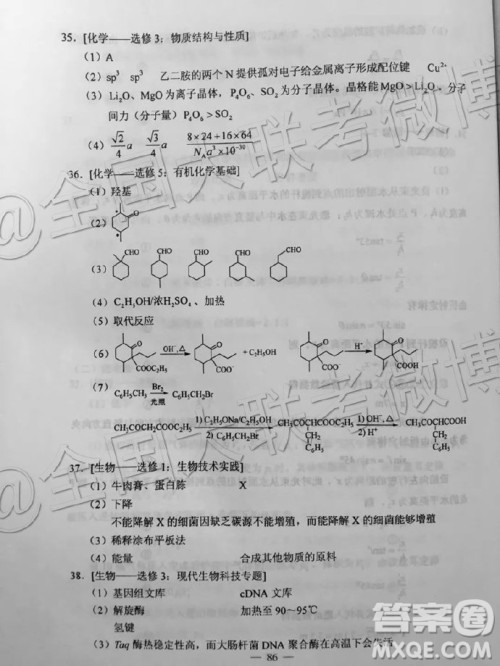 35. [化学——选修 3：物质结构与性质]
(1) A
(2) sp³ sp³ 乙二胺的两个 N 提供孤对电子给金属离子形成配位键 Cu²⁺
(3) Li₂O、MgO 为离子晶体，P₄O₆、SO₂ 为分子晶体。晶格能 MgO＞Li₂O、分子
间力（分子量）P₄O₆＞SO₂
(4) √2/4 a √3/4 a (8×24+16×64)/(N_A a³×10⁻³⁰)
36. [化学——选修 5：有机化学基础]
(1) 羟基
(2) O
(3) CHO CHO CHO CHO CHO
(4) C₂H₅OH/浓H₂SO₄、加热
(5) 取代反应
(6) O COOC₂H₅ OH⁻,△ O COO⁻ + C₂H₅OH H⁺ O COOH
(7) C₆H₅CH₃ Br₂ 光照 C₆H₅CH₂Br
CH₃COCH₂COOC₂H₅ 1) C₂H₅ONa/C₂H₅OH 2) C₆H₅CH₂Br CH₃COCHCOOC₂H₅ CH₂ C₆H₅ 1) OH⁻,△ 2) H⁺ CH₃COCHCOOH CH₂ C₆H₅
37. [生物——选修 1：生物技术实践]
(1) 牛肉膏、蛋白胨 X
(2) 下降
不能降解 X 的细菌因缺乏碳源不能增殖，而能降解 X 的细菌能够增殖
(3) 稀释涂布平板法
(4) 能量 合成其他物质的原料
38. [生物——选修 3：现代生物科技专题]
(1) 基因组文库 cDNA 文库
(2) 解旋酶 加热至 90~95℃
氢键
(3) Taq 酶热稳定性高，而大肠杆菌 DNA 聚合酶在高温下会失活
— 86 —
@全国大联考微博
答案圈